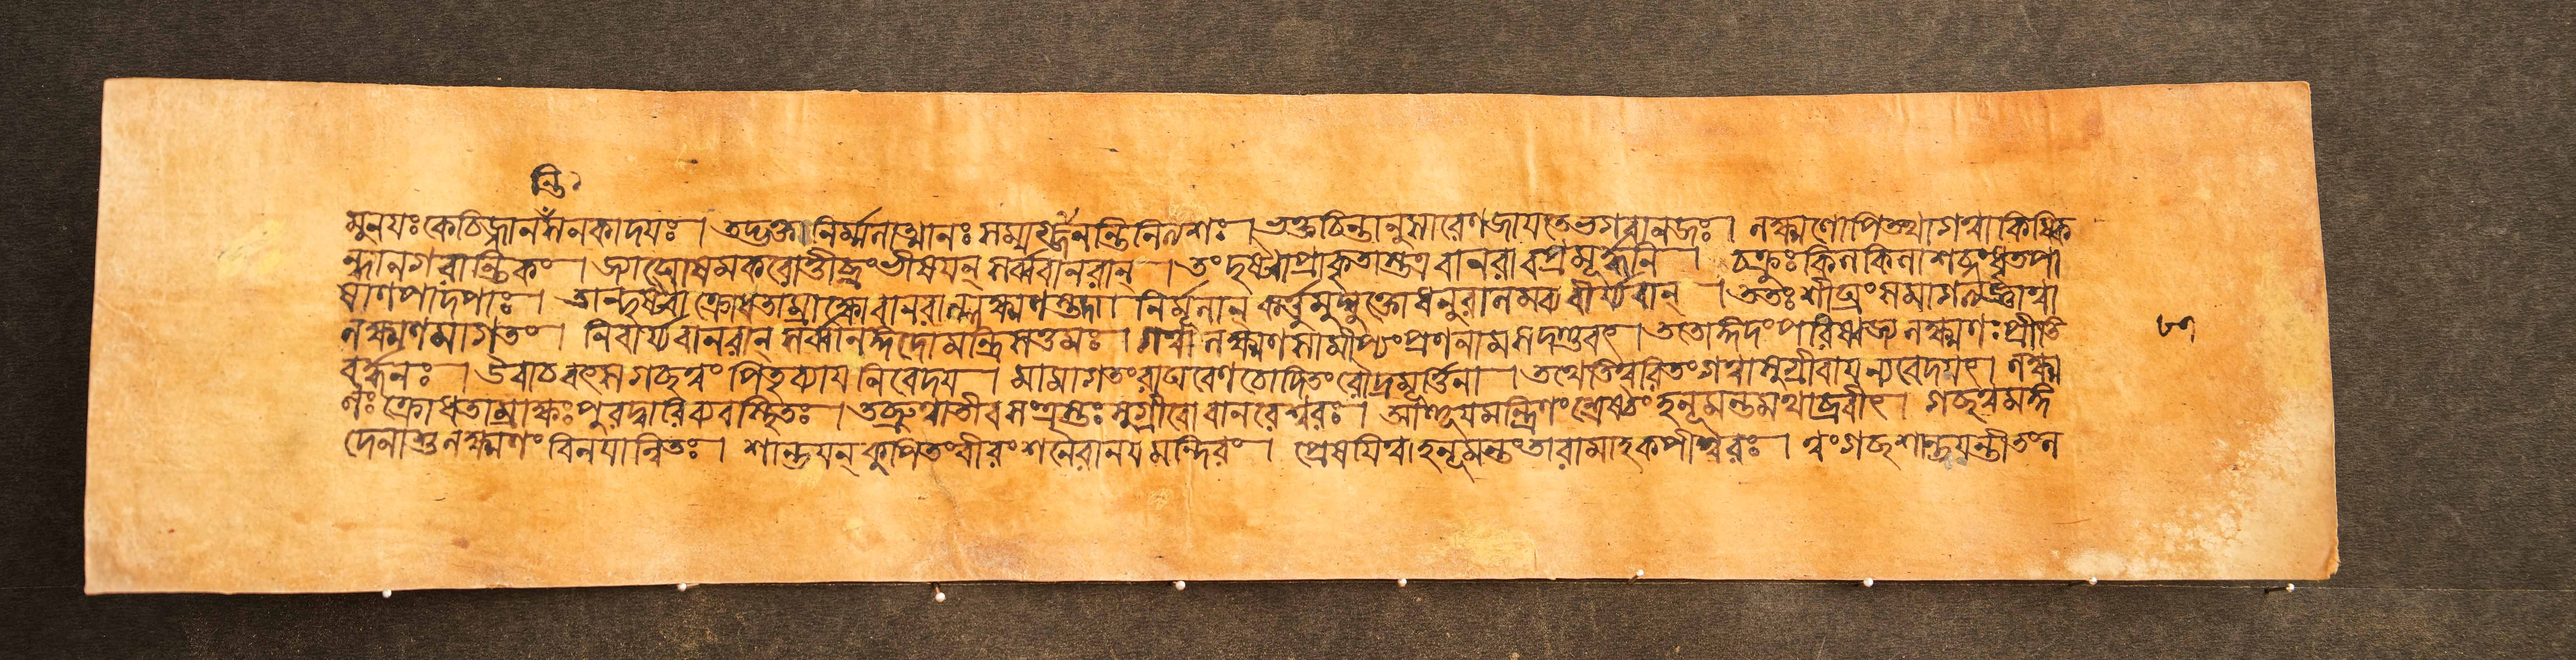 ন্তি
মুনয়ঃ কেচিজ্জানসনকাদয়ঃ । তদ্ভক্তা নির্ম্মলাত্মানঃ সম্যগ্জানন্তি নিত্যশঃ । ভক্তচিত্তানুসারেণ জায়তে ভগবানজঃ । লক্ষ্মণোপি তদাগত্বা কিষ্কি
ন্ধানগরান্তিকং । জ্যাঘোষমকরোত্তীব্রং ভীষয়ন্ সর্ব্ববানরান্ । তং দৃষ্ট্বা প্রাকৃতাস্তত্র বানরা বপ্রমূর্দ্ধনি । চক্রুঃ কিলকিলাশব্দং ধৃতপা
ষাণপাদপাঃ । তান্দৃষ্ট্বা ক্রোধতাম্রাক্ষো বানরাল্লক্ষ্মণস্তদা । নির্ম্মূলান্ কর্ত্তুমুদ্যুক্তো ধনুরানম্য বীর্য্যবান্ । ততঃ শীঘ্রং সমাগত্য জ্ঞাত্বা
লক্ষ্মণমাগতং । নিবার্য্য বানরান্ সর্ব্বানঙ্গদো মন্ত্রিসত্তমঃ । গত্বা লক্ষ্মণসামীপ্যং প্রণনাম স দণ্ডবৎ । ততোঙ্গদং পরিষ্বজ্য লক্ষ্মণঃ প্রীতি
বর্দ্ধনঃ । উবাচ বৎস গচ্ছ ত্বং পিতৃব্যায় নিবেদয় । মামাগতং রাঘবেণ চোদিতং রৌদ্রমূর্ত্তিনা । তথেতি ত্বরিতং গত্বা সুগ্রীবায় ন্যবেদয়ৎ । লক্ষ্ম
ণঃ ক্রোধতাম্রাক্ষঃ পুরদ্বারি ব্যবস্থিতঃ । তচ্ছ্রুত্বাতীব সংত্রস্তঃ সুগ্রীবো বানরেশ্বরঃ । আহূয় মন্ত্রিণাং শ্রেষ্ঠং হনূমন্তমথাব্রবীৎ । গচ্ছ ত্বমঙ্গ
দেনাশু লক্ষ্মণং বিনয়ান্বিতঃ । শান্ত্বয়ন্ কুপিতং বীরং শনৈরানয় মন্দিরং । প্রেষয়িত্বা হনূমন্তং তারামাহ কপীশ্বরঃ । ত্বং গচ্ছ শান্ত্বয়ন্তী তং ল
৮৭